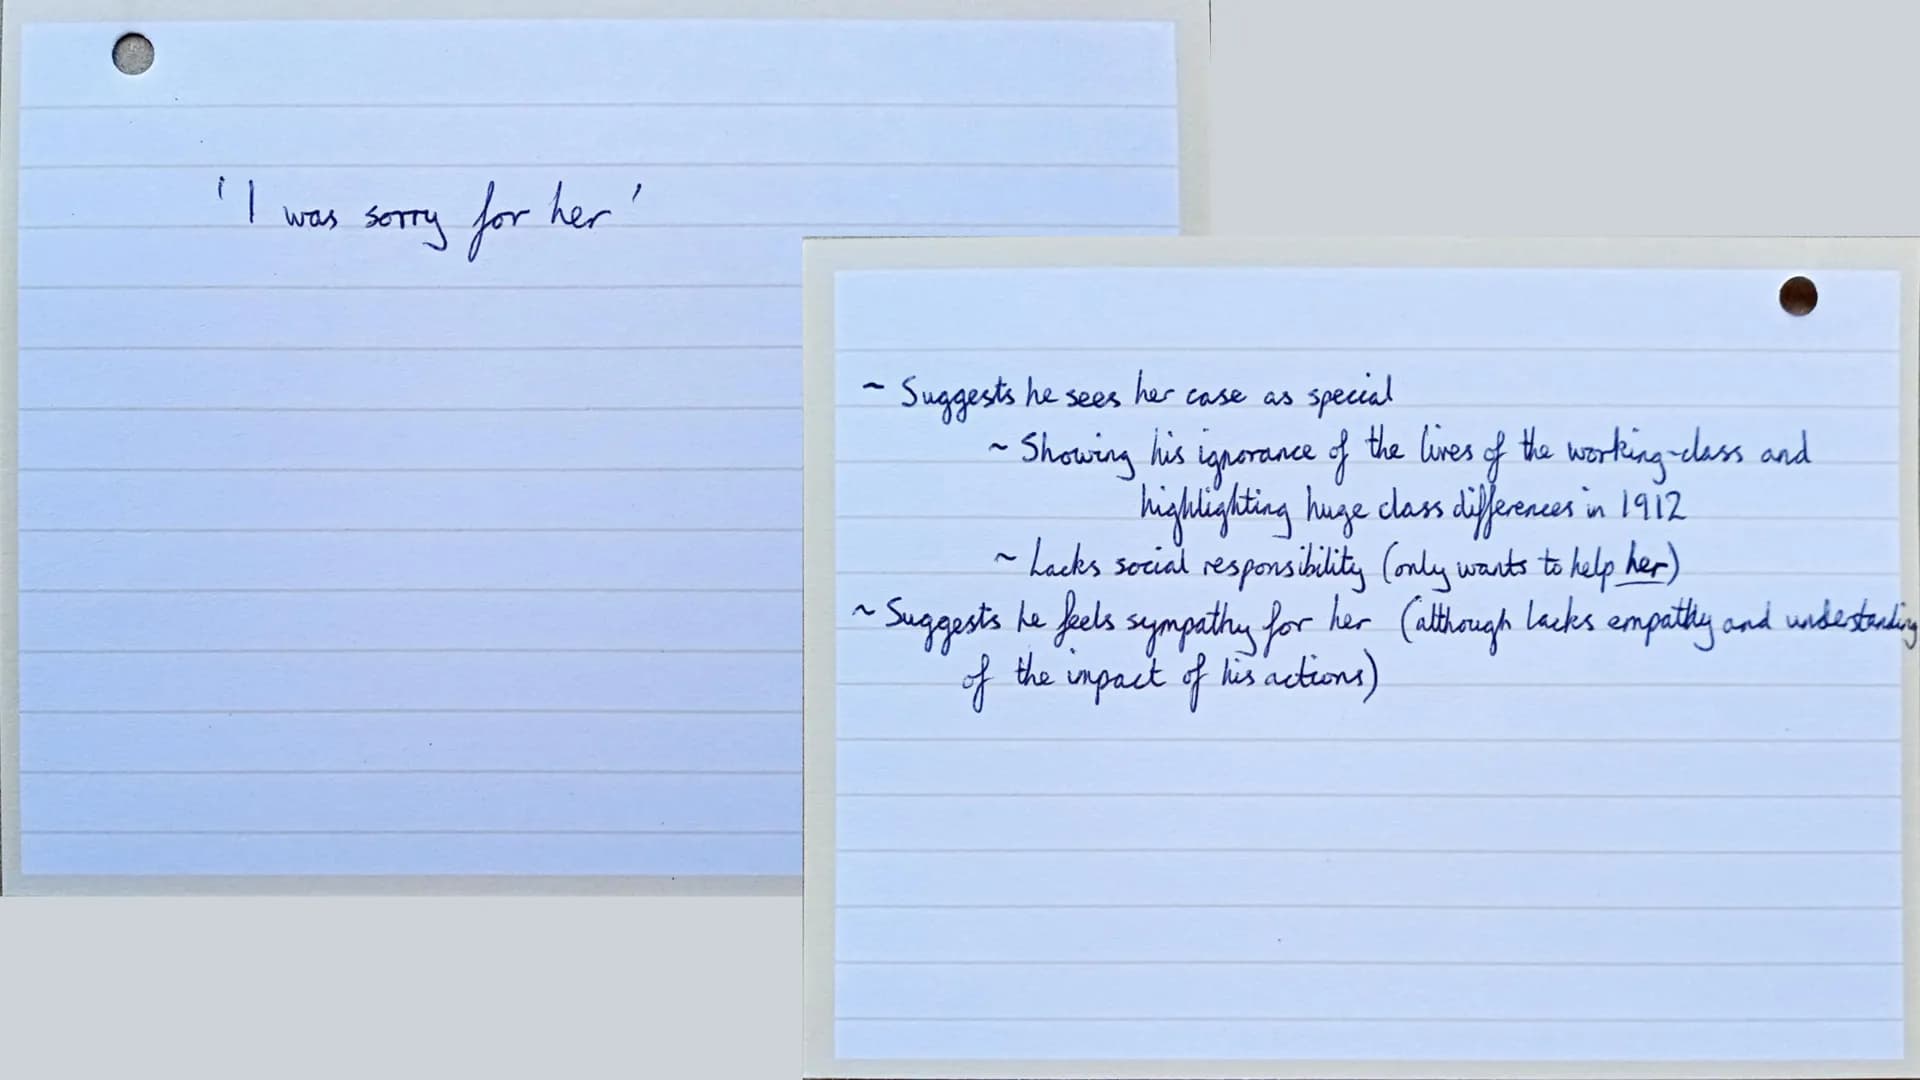 'I was sorry for her'
~ Suggests he sees her case as special
~ Showing his ignorance of the lives of the working-class and
highlighting huge class differences in 1912
~ Lacks social responsibility (only wants to help her)
~ Suggests he feels sympathy for her (although lacks empathy and understanding
of the impact of his actions)